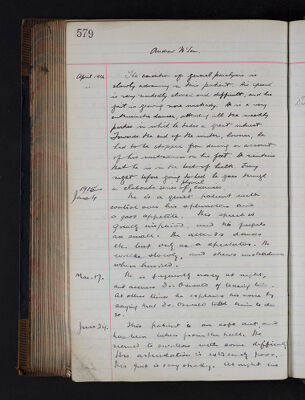 579
Andrew McLen.
April 1914
The condition of general paralysis is
slowly advancing in this patient. His speech
is very markedly slurred and difficult, and his
gait is growing more unsteady. He is a very
enthusiastic dancer, attending all the weekly
parties in which he takes a great interest.
Towards the end of the winter, however, he
had to be stopped from dancing on account
of his unsteadiness on his feet. He
that he is in the best of health. Every
night before going to bed he goes through
a elaborate series of physical exercises
1915
June 4
He is a quiet patient with
control over his sphincters and
a good appetite. His speech is
greatly impaired and his pupils
are small. He attends dances
etc. but only as a spectator. He
walks slowly, and shews unsteadiness
when turned.
Nov. 17.
He is frequently noisy at night,
and accuses Dr. Oswald of teasing him.
At other times he explains his noise by
saying that Dr. Oswald told him to do
so.
June 24.
This patient is on soft diet and
has been taken from the hall. He
seemed to swallow with some difficulty.
His articulation is extremely poor.
His gait is very shaky. At night he